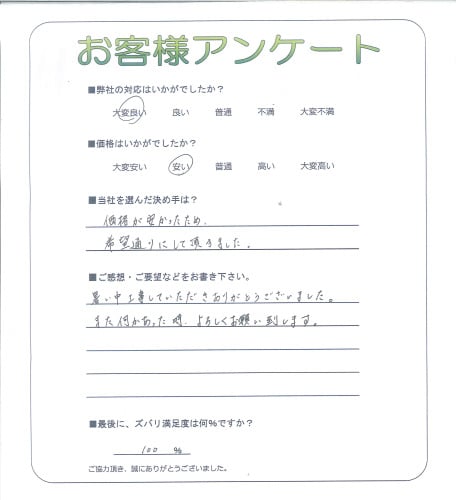 お客様アンケート
■弊社の対応はいかがでしたか？
大変良い 良い 普通 不満 大変不満
■価格はいかがでしたか？
大変安い 安い 普通 高い 大変高い
■当社を選んだ決め手は？
価格が安かったため、
希望通りにして頂きました。
■ご感想・ご要望などをお書き下さい。
暑い中工事していただきありがとうございました。
また何かあった時、よろしくお願い致します。
■最後に、ズバリ満足度は何％ですか？
100 %
ご協力頂き、誠にありがとうございました。